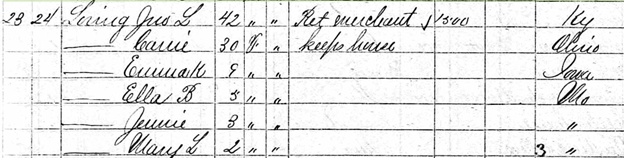 23 24 Loring Jno L 42 " " Ret merchant 1500 Ky
—— Carrie 30 F " keeps house Ohio
—— Emma K 9 " " Iowa
—— Ella B 5 " " Mo
—— Jennie 3 " " "
—— Mary L 2 " " 3 "